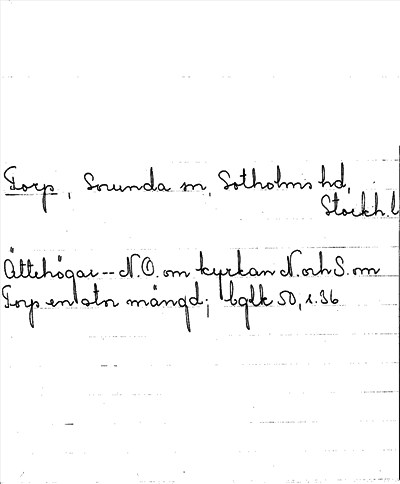 Torp, Sorunda sn, Sotholms hd,
Stockh. l
Ättehögar -- N.O. om kyrkan N. och S. om
Torp en stor mängd; bglk 50, s. 36